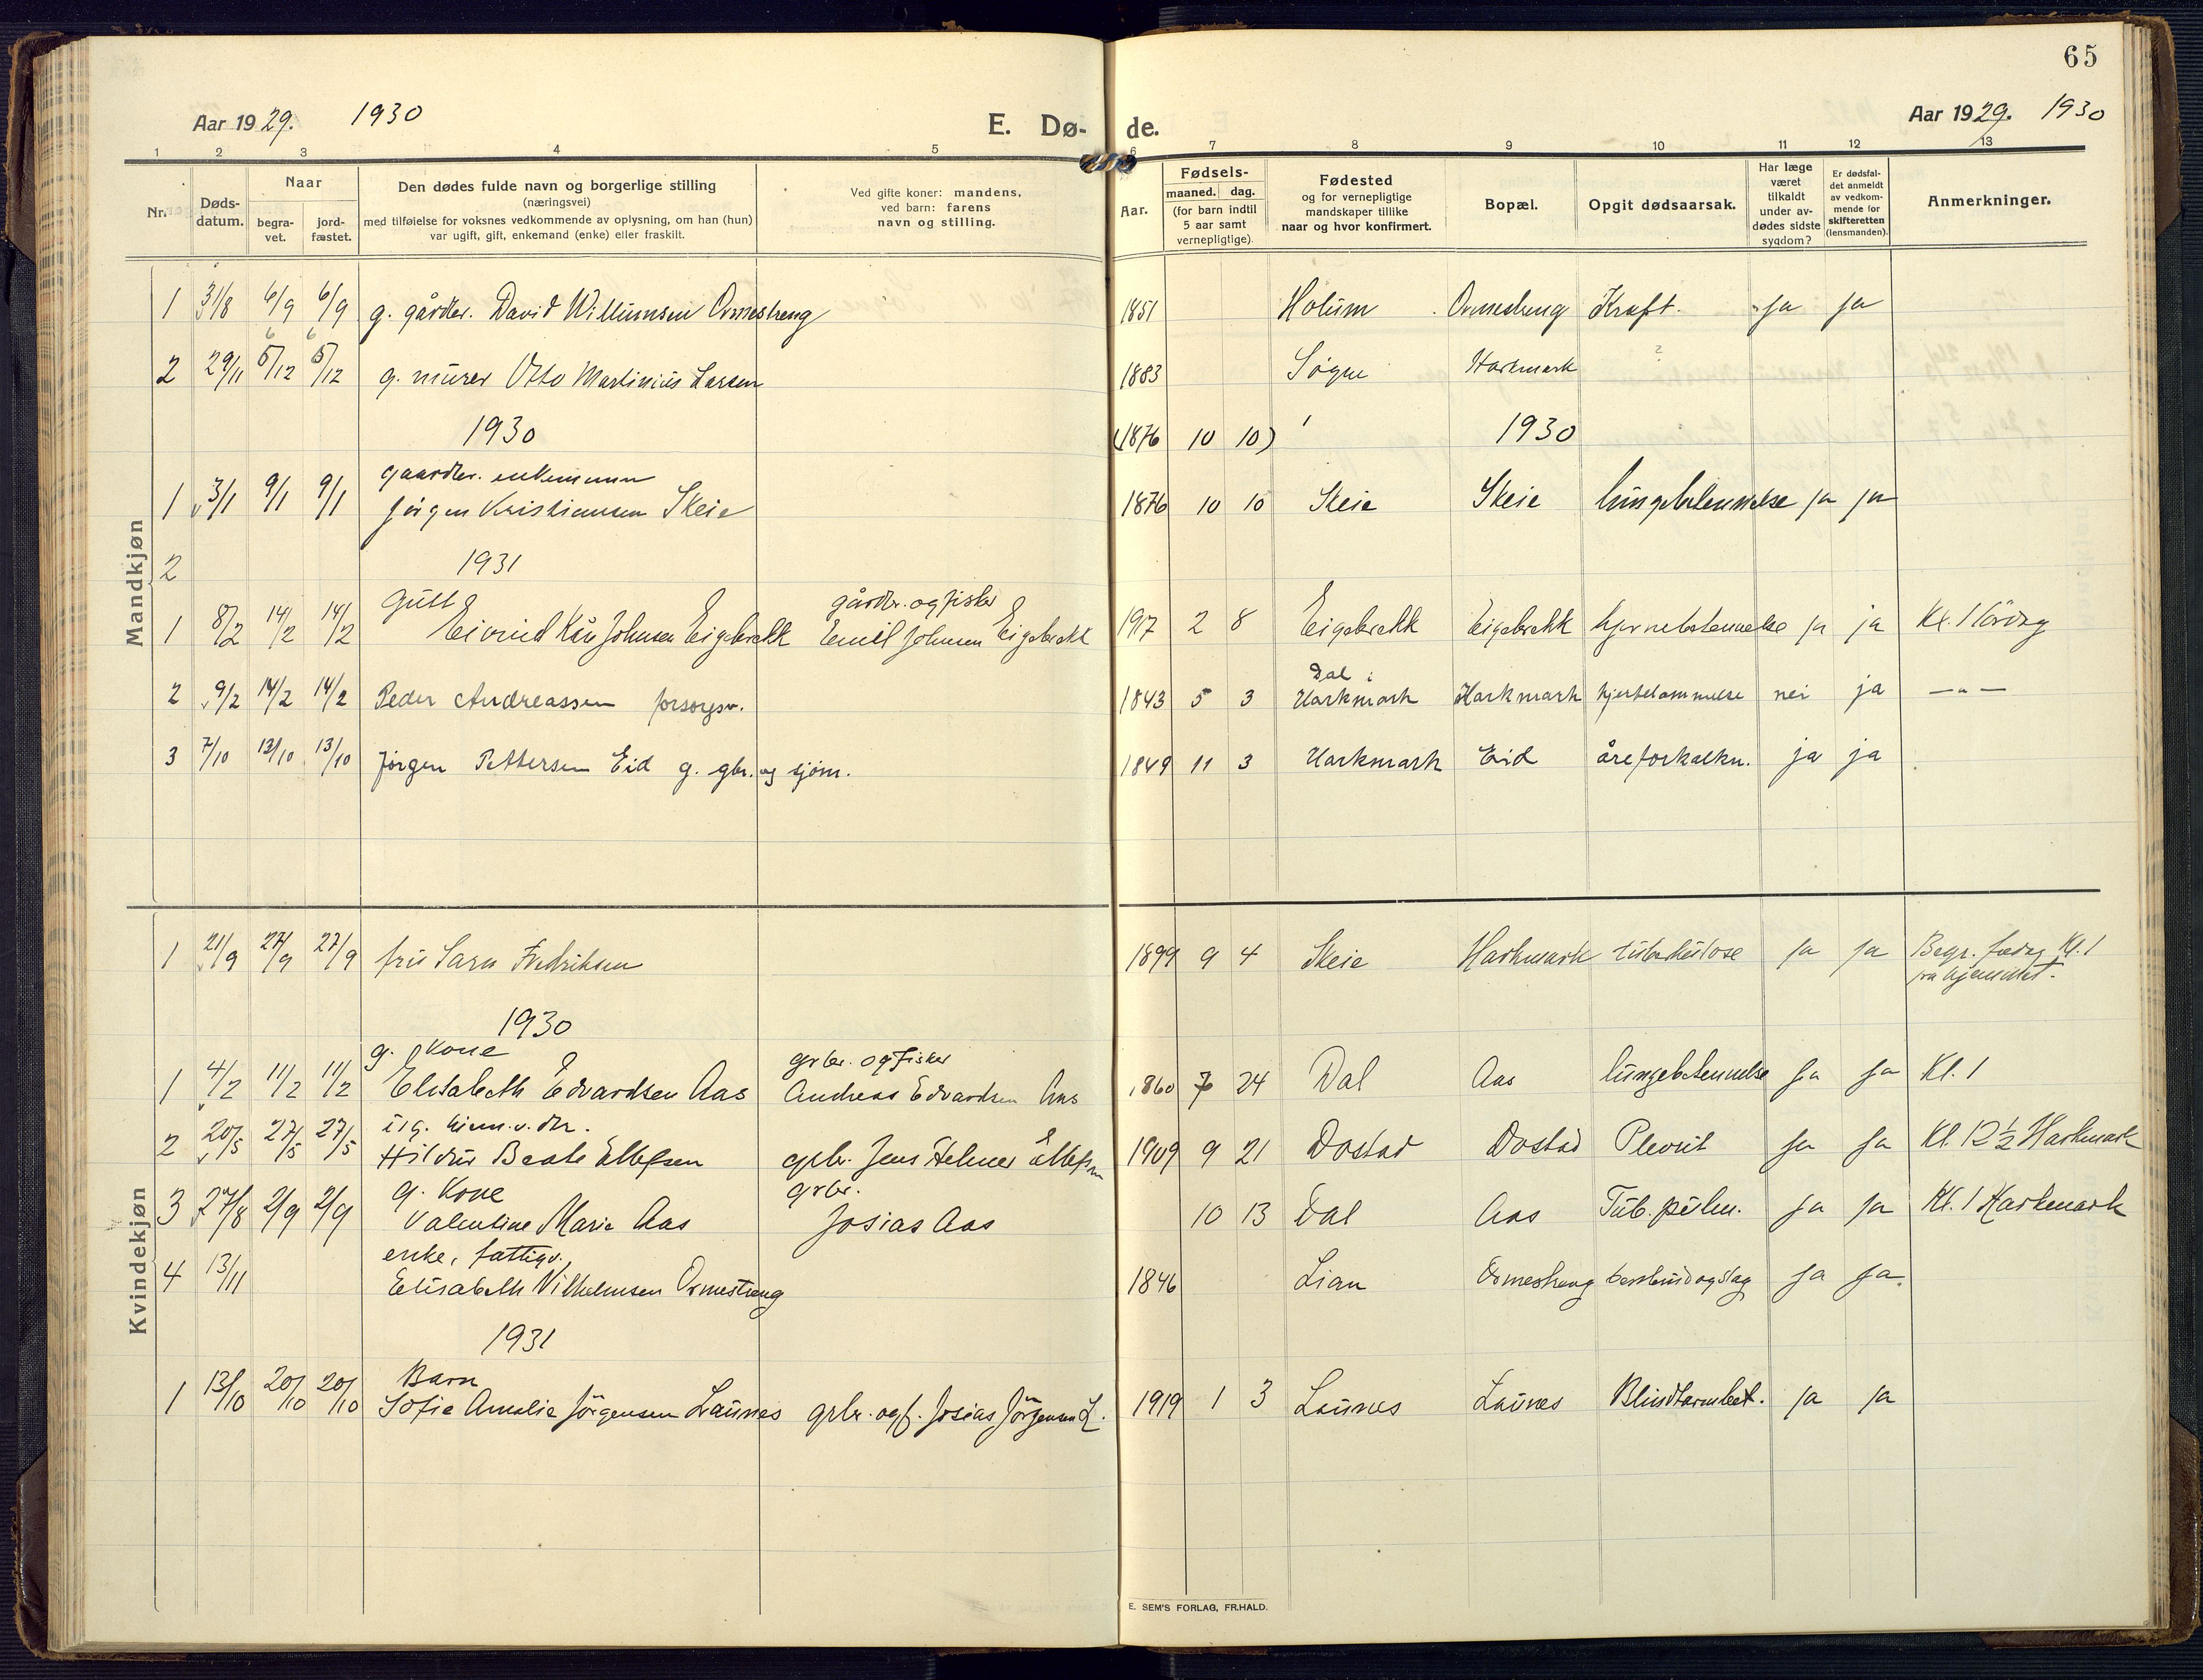 65
Aar 1929. 1930
E. Dø- de.
Aar 1929. 1930
1 2 3 4 5 6 7 8 9 10 11 12 13
Nr.
Døds-
datum.
Naar
begra-
vet.
jord-
fæstet.
Den dødes fulde navn og borgerlige stilling
(næringsvei)
med tilføielse for voksnes vedkommende av oplysning, om han (hun)
var ugift, gift, enkemand (enke) eller fraskilt.
Ved gifte koner: mandens,
ved barn: farens
navn og stilling.
Aar.
Fødsels-
maaned. dag.
(for barn indtil
5 aar samt
vernepligtige).
Fødested
og for vernepligtige
mandskaper tillike
naar og hvor konfirmert.
Bopæl.
Opgit dødsaarsak.
Har læge
været
tilkaldt
under av-
dødes sidste
sygdom?
Er dødsfal-
det anmeldt
av vedkom-
mende for
skifteretten
(lensmanden).
Anmerkninger.
Mandkjøn
1 31/8 6/9 6/9 g. gårdbr. David Willumsen Ormestreng 1851 Holum Ormestreng Kræft. ja ja
6 6
2 29/11 5/12 5/12 g. murer Otto Martinius Larsen 1883 Søgne Harkmark ?
1930 (1876 10 10) 1930
gaardbr. enkemann
1 3/1 9/1 9/1 Jörgen Kristiansen Skeie 1876 10 10 Skeie Skeie lungebetennelse ja ja
2 1931
Gutt gårdbr. og fisker
1 8/2 14/2 14/2 Eivind Kåre Johnsen Eigebrekk Emil Johnsen Eigebrekk 1917 2 8 Eigebrekk Eigebrekk hjernebetennelse ja ja Kl. 1 lördag
Dal i
2 9/2 14/2 14/2 Peder Andreassen forsorgsv. 1843 5 3 Harkmark Harkmark hjertelammelse nei ja — " —
3 7/10 13/10 13/10 Jörgen Pettersen Eid g. gbr. og sjöm. 1849 11 3 Harkmark Eid åreforkalkn. ja ja
Kvindekjøn
1 21/9 27/9 27/9 fru Sara Fredriksen 1899 9 4 Skeie Harkmark tuberkulose ja ja Begr. fredag Kl. 1
fra hjemmet.
1930
g. Kone grbr. og Fisker
1 4/2 11/2 11/2 Elisabeth Edvardsen Aas Andreas Edvardsen Aas 1860 7 24 Dal Aas lungebetennelse ja ja Kl. 1
ug. hjem.v. dtr.
2 20/5 27/5 27/5 Hildur Beate Ellefsen grbr. Jens Helmer Ellefsen 1909 9 21 Dostad Dostad Plevrit ja ja Kl. 12 ½ Harkmark
g. Kone grbr.
3 27/8 2/9 2/9 Valentine Marie Aas Josias Aas 10 13 Dal Aas Tub. pulm. ja ja Kl. 1 Harkmark
enke, fattigv.
4 13/11 Elisabeth Vilhelmsen Ormestreng 1846 Lian Ormestreng ja ja.
1931
Barn
1 13/10 20/10 20/10 Sofie Amalie Jörgensen Launes grbr. og f. Josias Jörgensen L. 1919 1 3 Launes Launes Blindtarmbet. ja ja
E. SEM'S FORLAG, FR.HALD.